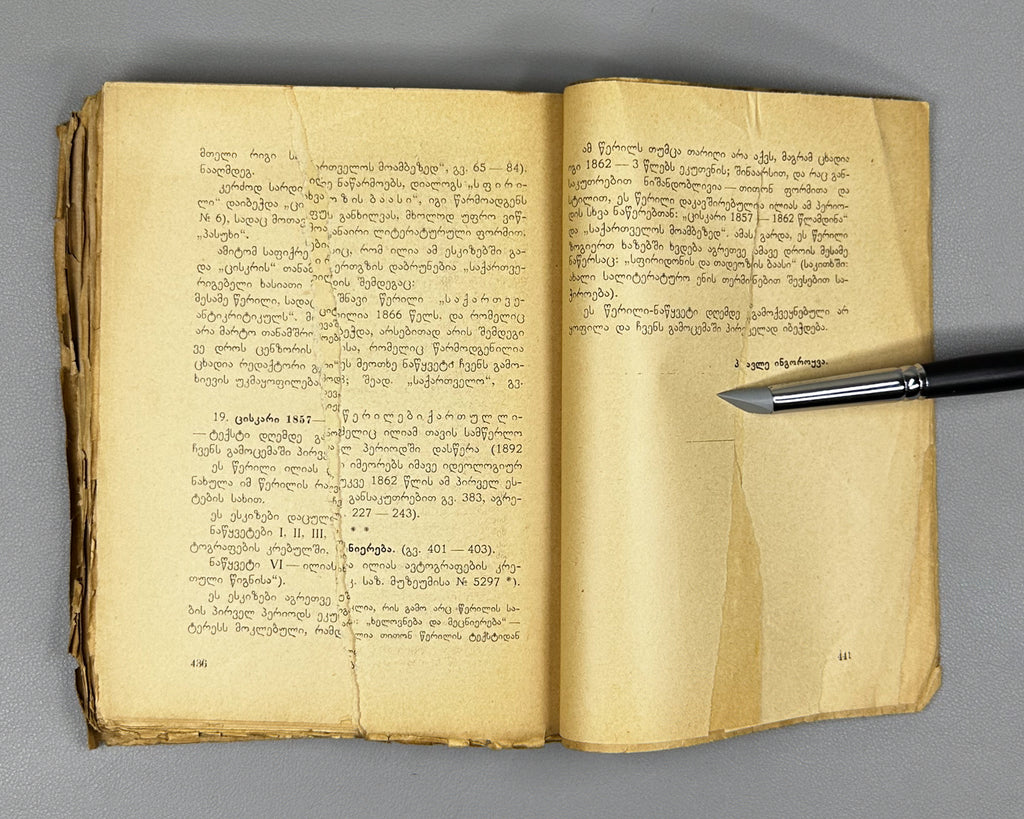 მთელი რიგი
ართველოს მოამბეზედ“, გვ. 65 — 84).
ნააღმდეგ.
კერძოდ სარდი
ნაწარმოებს, დიალოგს „ს ფ ი რ ი-
ლი“ დაიბეჭდა „ცი
ო ზ ი ს ბ ა ა ს ი“, იგი წარმოადგენს
№ 6), სადაც მოთავ
განხილვას, მხოლოდ უფრო ვიწ-
„პასუხი“.
ანაირი ლიტერატურული ფორმით.
ამიტომ საფიქრე
რომ ილია ამ ესკიზებში გა-
და „ცისკრის“ თანამ
ერთგზის დაბრუნებია „საქართვე-
რიგებელი ხასიათი
დის შემდეგაც:
მესამე წერილი, სადაც
შნავი წერილი „ს ა ქ ა რ თ ვ ე-
ანტიკრიტიკულს“.
1866 წელს, და რომელიც
არა მარტო თანამშრო
ბეჭდა, არსებითად არის შემდეგი
ვე დროს ცენზორის
ისა, რომელიც წარმოდგენილია
ცხადია რედაქტორი
მეოთხე ნაწყვეტი ჩვენს გამო-
ხიევის უკმაყოფილება
შეად. „საქართველო“, გვ.
19. ცისკარი 1857—
წ ე რ ი ლ ე ბ ი ქ ა რ თ უ ლ ლ ი-
— ტექსტი დღემდე
მელიც ილიამ თავის სამწერლო
ჩვენს გამოცემაში პირვ
პერიოდში დასწერა (1892
ეს წერილი ილიას
იმეორებს იმავე იდეოლოგიურ
ნახულა იმ წერილის
უკვე 1862 წლის ამ პირველ ეს-
ტების სახით.
განსაკუთრებით გვ. 383, აგრე-
ეს ესკიზები დაცულ
227 — 243).
ნაწყვეტები I, II, III,
* *
ტოგრაფების კრებულში.
ნიერება. (გვ. 401 — 403).
ნაწყვეტი VI — ილიას
ილიას ავტოგრაფების კრე-
თული წიგნისა“).
კ. საზ. მუზეუმისა № 5297 *).
ეს ესკიზები აგრეთვე
რის გამო არც წერილის სა-
ბის პირველ პერიოდს ეკუ
„ხელოვნება და მეცნიერება“ —
ტერესს მოკლებული, რამდ
ლია თითონ წერილის ტექსტიდან
436
ამ წერილს თუმცა თარიღი არა აქვს, მაგრამ ცხადია
იგი 1862 — 3 წლებს ეკუთვნის; შინაარსით, და რაც გან-
საკუთრებით ნიშანდობლივია — თითონ ფორმითა და
სტილით, ეს წერილი დაკავშირებულია ილიას ამ პერიო-
დის სხვა ნაწერებთან: „ცისკარი 1857 — 1862 წლამდინა“
და „საქართველოს მოამბეზედ“. ამას გარდა, ეს წერილი
ზოგიერთ ხაზებში ხვდება აგრეთვე ამავე დროის მესამე
ნაწერსაც: „სფირიდონის და თადეოზის ბაასი“ (საკითხში:
ახალი სალიტერატურო ენის თერმინებით შევსების სა-
ჭიროება).
ეს წერილი-ნაწყვეტი დღემდე გამოქვეყნებული არ
ყოფილა და ჩვენს გამოცემაში პირველად იბეჭდება.
პავლე ინგოროყვა.